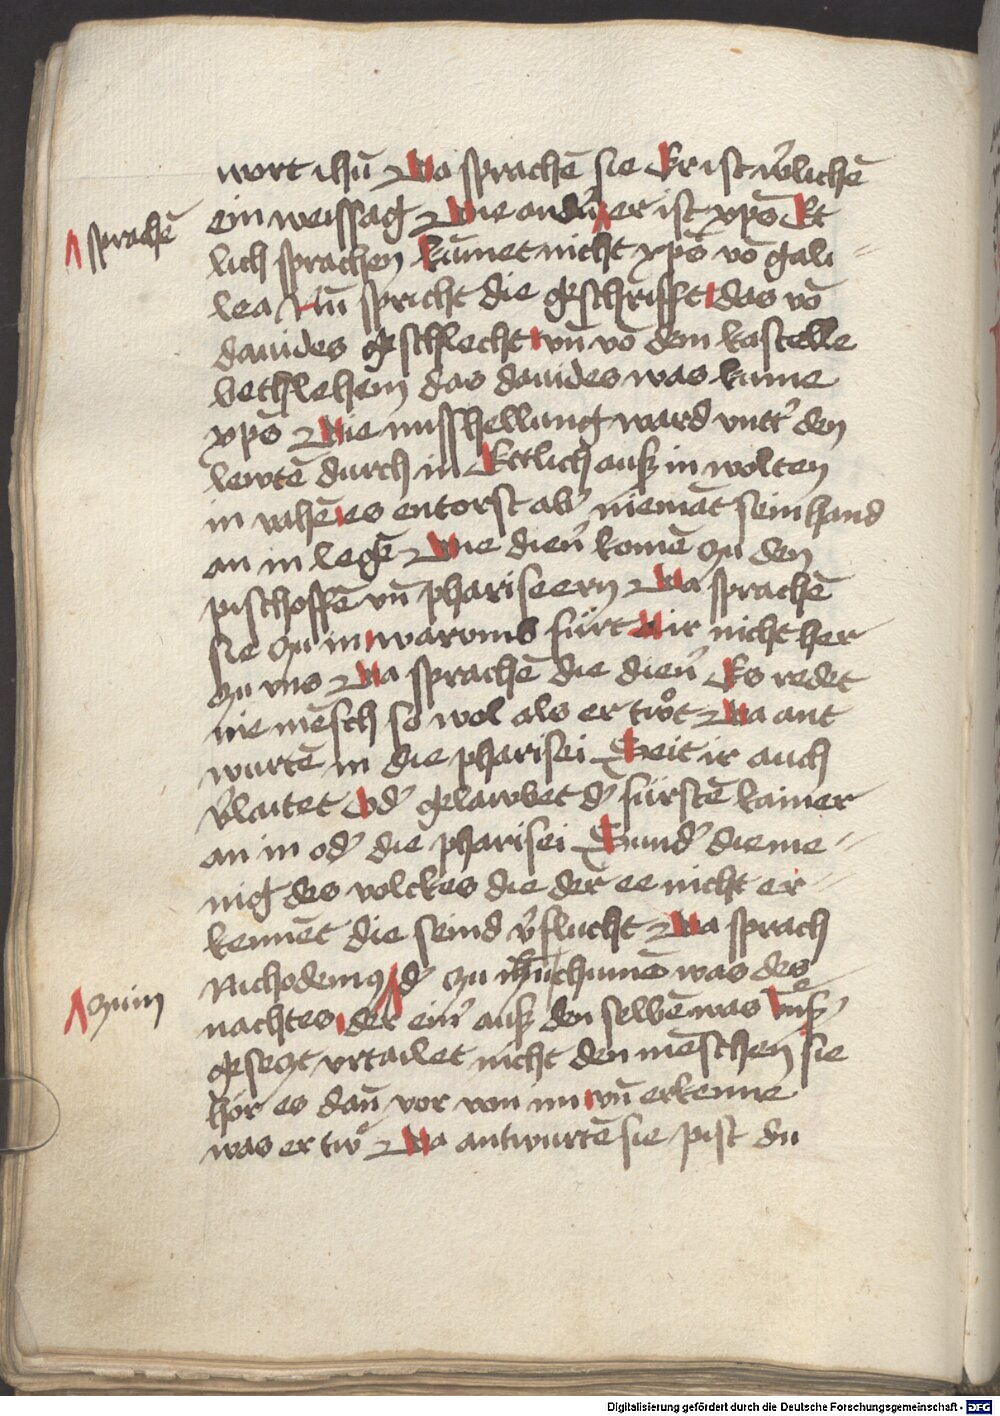 wort ihū Da sprachē sie Er ist v̓lichē
ein weissag Die andn̄ er ist xp̄s Et
sprachē
lich sprachen kūmet nicht xp̄s vō gali
lea Nū spricht die geschrifft das vō
dauides geschlecht vn̄ vō dem kastelle
bethlehem das dauides was kume
xp̄s Die misshellung ward vntt̓ den
lewtē durch in Ettlich auß in wolten
in vahē es entorst ab̓ niemāt sein hand
an in legē Die dien̓ komē zu den
pischoffē vn̄ phariseern Da sprachē
sie zu in warvmb fürt ir in nicht her
zu vns Da sprachē die dien̓ Es redet
nie mēsch so wol als er twͦt Da ant
wurtē in die pharisei Seit ir auch
v̓laitet Od̓ gelawbet d̓ fürstē kainer
an in od̓ die pharisei Sund̓ die me
nig des volckes die der ee nicht er
kennēt die seind v̓flucht Da sprach
Nichodemꝰ d̓ zu chumē was des
zu im
nachtes der ein̓ auß den selbē was Vnß̓
gesetzt vrtailet nicht den menschen sie
hör es dan̄ vor von im vn̄ erkenne
was er twͦ Da antwurtē sie pist du
Digitalisierung gefördert durch die Deutsche Forschungsgemeinschaft - DFG